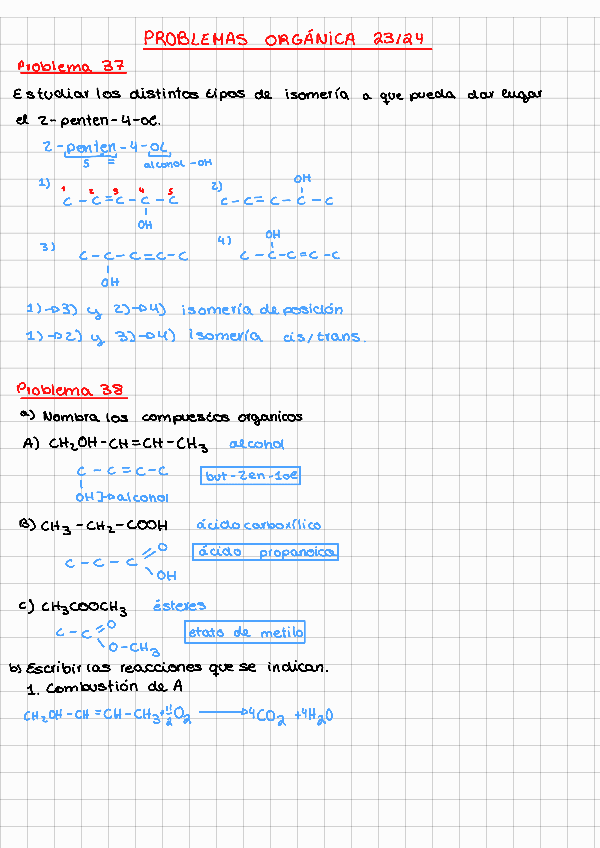 PROBLEMAS ORGÁNICA 23/24
Problema 37
Estudiar los distintos tipos de isomería a que pueda dar lugar
el 2-penten-4-ol.
2-penten-4-ol
5 = alcohol -OH
1) 1 2 3 4 5 2) OH
C - C = C - C - C C - C = C - C - C
OH
3) 4) OH
C - C - C = C - C C - C - C = C - C
OH
1)→3) y 2)→4) isomería de posición
1)→2) y 3)→4) isomería cis/trans.
Problema 38
a) Nombra los compuestos organicos
A) CH2OH-CH=CH-CH3 alcohol
C - C = C - C but-2en-1ol
OH]→alcohol
B) CH3-CH2-COOH ácido carboxílico
C - C - C =O ácido propanoica
OH
C) CH3COOCH3 ésteres
C - C =O etato de metilo
O-CH3
b) Escribir las reacciones que se indican.
1. Combustión de A
CH2OH-CH=CH-CH3+11/2O2 → 4CO2 +4H2O